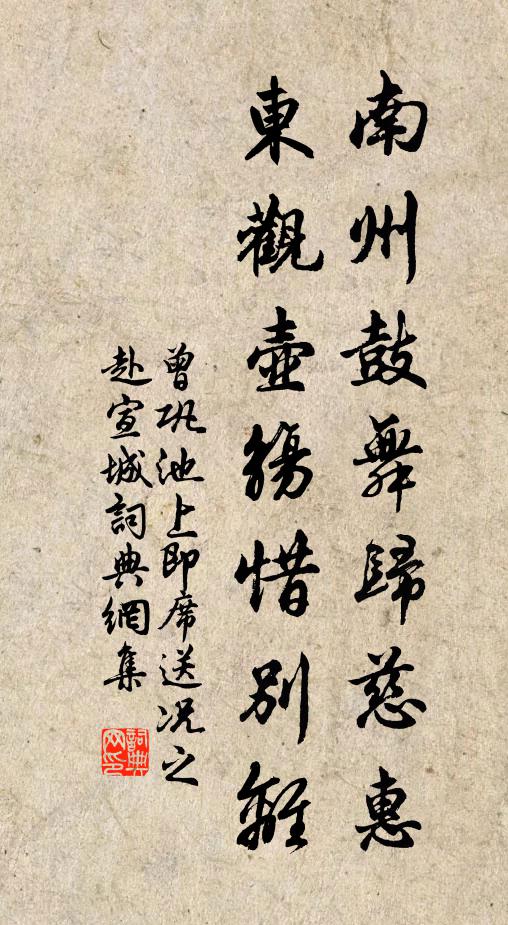 南州鼓舞歸慈惠
東觀壺觴惜別離
曾巩池上即席送况之
赴宣城詞典網集
詞典網印